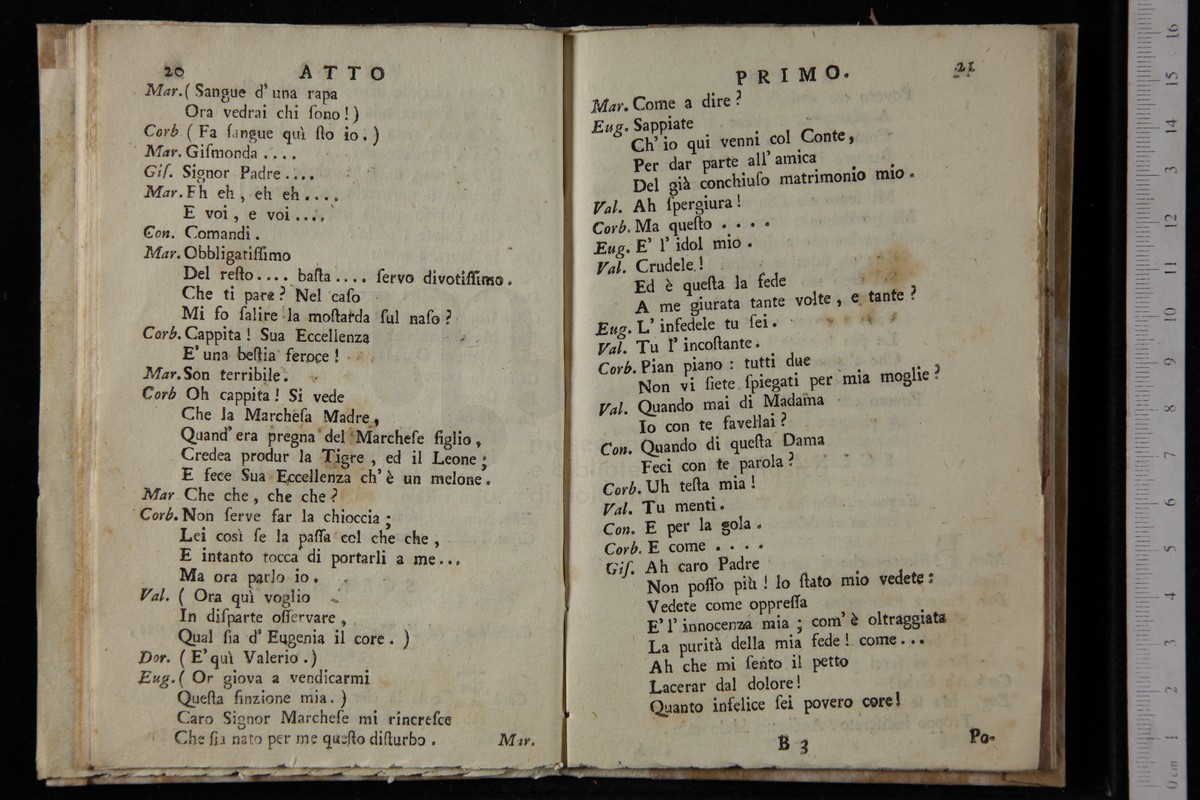 20 ATTO
Mar. ( Sangue d' una rapa
Ora vedrai chi ſono ! )
Corb ( Fa ſangue quì ſto io . )
Mar. Giſmonda ....
Giſ. Signor Padre ....
Mar. Eh eh , eh eh ....
E voi , e voi ....
Con. Comandi .
Mar. Obbligatiſſimo
Del reſto .... baſta .... ſervo divotiſſimo .
Che ti pare ? Nel caſo
Mi fo ſalire la moſtarda ſul naſo ?
Corb. Cappita ! Sua Eccellenza
E' una beſtia feroce !
Mar. Son terribile .
Corb Oh cappita ! Si vede
Che la Marcheſa Madre ,
Quand' era pregna del Marcheſe figlio ,
Credea produr la Tigre , ed il Leone ;
E fece Sua Eccellenza ch' è un melone .
Mar Che che , che che ?
Corb. Non ſerve far la chioccia ;
Lei così ſe la paſſa col che che ,
E intanto tocca di portarli a me ...
Ma ora parlo io .
Val. ( Ora quì voglio
In diſparte oſſervare ,
Qual ſia d' Eugenia il core . )
Dor. ( E' quì Valerio . )
Eug. ( Or giova a vendicarmi
Queſta finzione mia . )
Caro Signor Marcheſe mi rincreſce
Che ſia nato per me queſto diſturbo .
Mar.
PRIMO. 21
Mar. Come a dire ?
Eug. Sappiate
Ch' io qui venni col Conte ,
Per dar parte all' amica
Del già conchiuſo matrimonio mio .
Val. Ah ſpergiura !
Corb. Ma queſto ....
Eug. E' l' idol mio .
Val. Crudele !
Ed è queſta la fede
A me giurata tante volte , e tante ?
Eug. L' infedele tu ſei .
Val. Tu l' incoſtante .
Corb. Pian piano : tutti due
Non vi ſiete ſpiegati per mia moglie ?
Val. Quando mai di Madama
Io con te favellai ?
Con. Quando di queſta Dama
Feci con te parola ?
Corb. Uh teſta mia !
Val. Tu menti .
Con. E per la gola .
Corb. E come ....
Giſ. Ah caro Padre
Non poſſo più ! Io ſtato mio vedete :
Vedete come oppreſſa
E' l' innocenza mia ; com' è oltraggiata
La purità della mia fede ! come ...
Ah che mi ſento il petto
Lacerar dal dolore !
Quanto infelice ſei povero core !
B 3
Po-